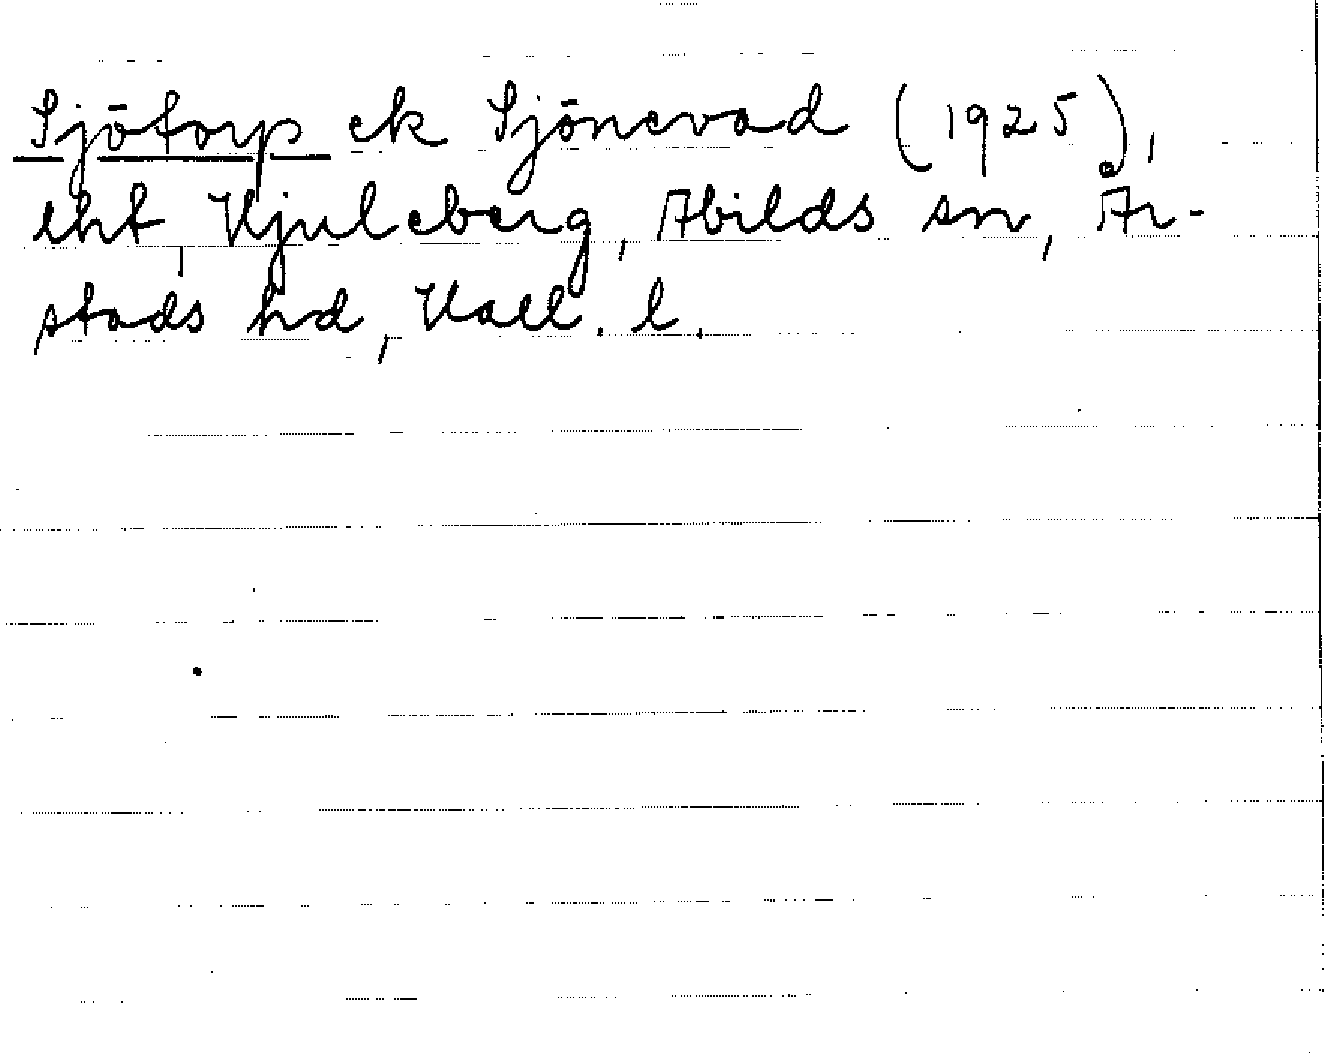 Sjötorp ek Sjönevad (1925),
lht Hjuleberg, Abilds sn, År-
stads hd, Hall. l.